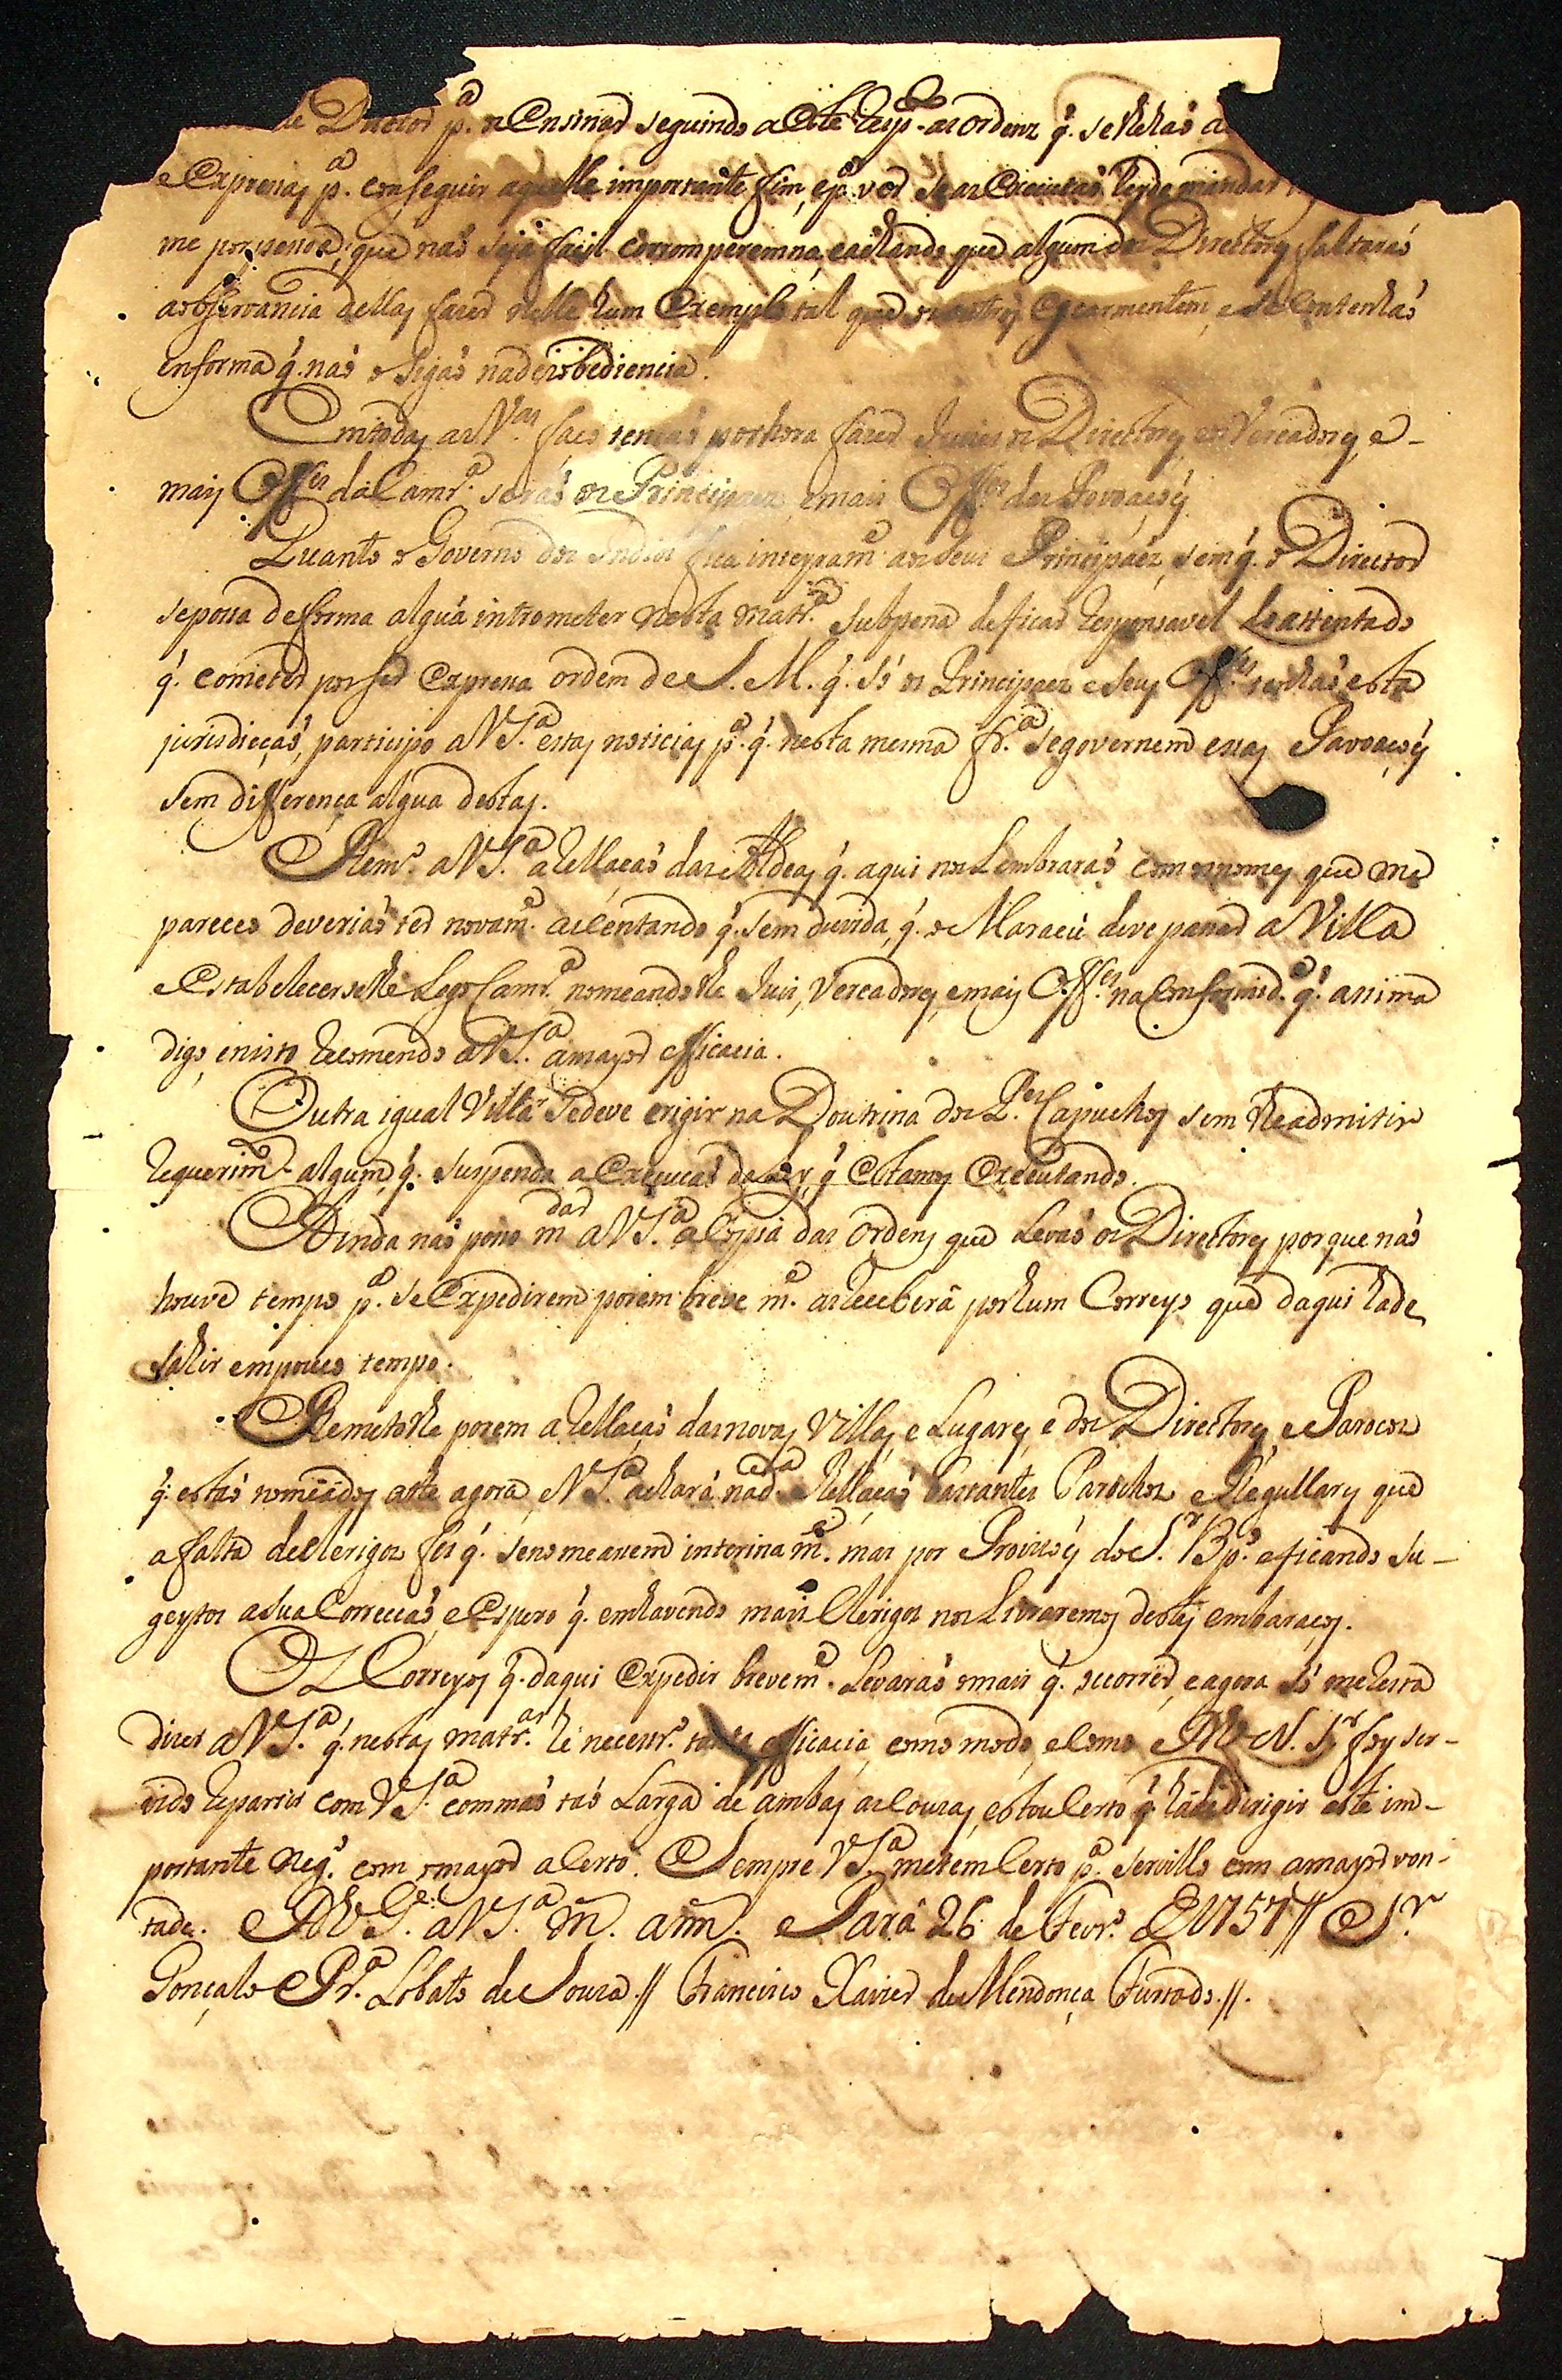 de Director p.ª os ensinar seguindo a este resp.to as ordenz q̃. se lhes
expressaz p.ª conseguir aquelle importante fim, e p.ª ver se as executaõ hey de mandar
me por pessoa, que naõ seja facil corromperemna, e achando que algum dos Directorez faltaraõ
a observancia dellaz fazer nelle hum exemplo tal que os outroz escarmentem, e se contenhaõ
em forma q̃. naõ o sigaõ na dezobediencia.
Em todaz as V.as faço tençaõ por hora fazer Juizes os Directorez, e os Vereadorez, e
maiz Off.es da Camr.ª seraõ os Principaez, e mais Off.es das Povoaçoẽz.
Quanto o Governo dos Indios fica integram.e aos seus Principáez, sem q̃. o Director
se possa de forma algũa intrometer nesta matr.ª subpena de ficar responsavel do attentado
q̃. cometer por ser expressa ordem de S. M. q̃. só os Principaez e seuz Off.es tenhaõ esta
jurisdicçaõ, participo a VS.ª estaz noticiaz p.ª q̃. nesta mesma fr.ª se governem essaz Povoaçoẽz
sem differença algua destaz.
Rem.o a VS.ª a rellaçaõ das Aldeaz q̃. aqui nos lembraraõ com os nomez que me
pareceo deveriaõ ter novam.e assentando q̃. sem duvida, q̃. o Maracú deve passar a Villa
e estabelecerselhe logo Camr.ª nomeandolhe Juiz, Vereadorez, e maiz Off.es na conformid.e q̃. assima
digo, e nisto recomendo a VS.ª a mayor efficacia.
Outra igual Villa se deve erigir na Doutrina dos P.es Capuchoz sem lhe admitir
requerim.to algum, q̃. suspenda a execuçaõ da Ley, q̃ estamoz executando.
Ainda naõ posso m.dar a VS.ª a copia das ordenz que levaõ os Directorez porque naõ
houve tempo p.ª se expedirem porem breve m.e as receberá por hum Correyo que daqui hade
sahir em pouco tempo.
Remetolhe porem a rellaçaõ das novaz Villaz, e Lugarez, e dos Directorez, e Parocos
q̃. estaõ nomeadoz athe agora, e VS.ª achará na d.ª Rellaçaõ bastantes Parochos Regullarez que
a falta de clerigos fez q̃. se nomeassem interina m.e mas por Provizoẽz do S.r Bp.o e ficando su-
geytos a sua Correcçaõ, e espero q̃. em havendo mais Clerigos nos livraremoz destez embaraçoz.
Os Correyoz q̃. daqui expedir brevem.e levaraõ o mais q̃. occorrer, e agora só me resta
dizer a VS.ª q̃. nestaz matr.as hé necessr.o tanta efficacia, como modo, e como N. S.r foy ser-
vido repartir com VS.ª com maõ taõ larga de ambaz as couzaz, estou certo q̃ hade dirigir este im-
portante neg.o com o mayor acerto. Sempre VS.ª me tem certo p.ª servillo com a mayor von-
tade. D.s G.e a VS.ª m. ann. Pará 26 de Fevr.o de 1757 // S.r
Gonçalo Pr.ª Lobato de Souza // Francisco Xavier de Mendonça Furtado.//.